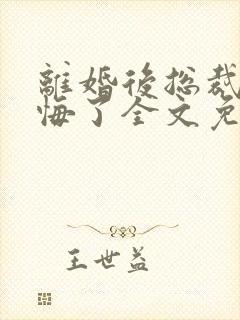 離婚後总裁
悔了全文免
王世益